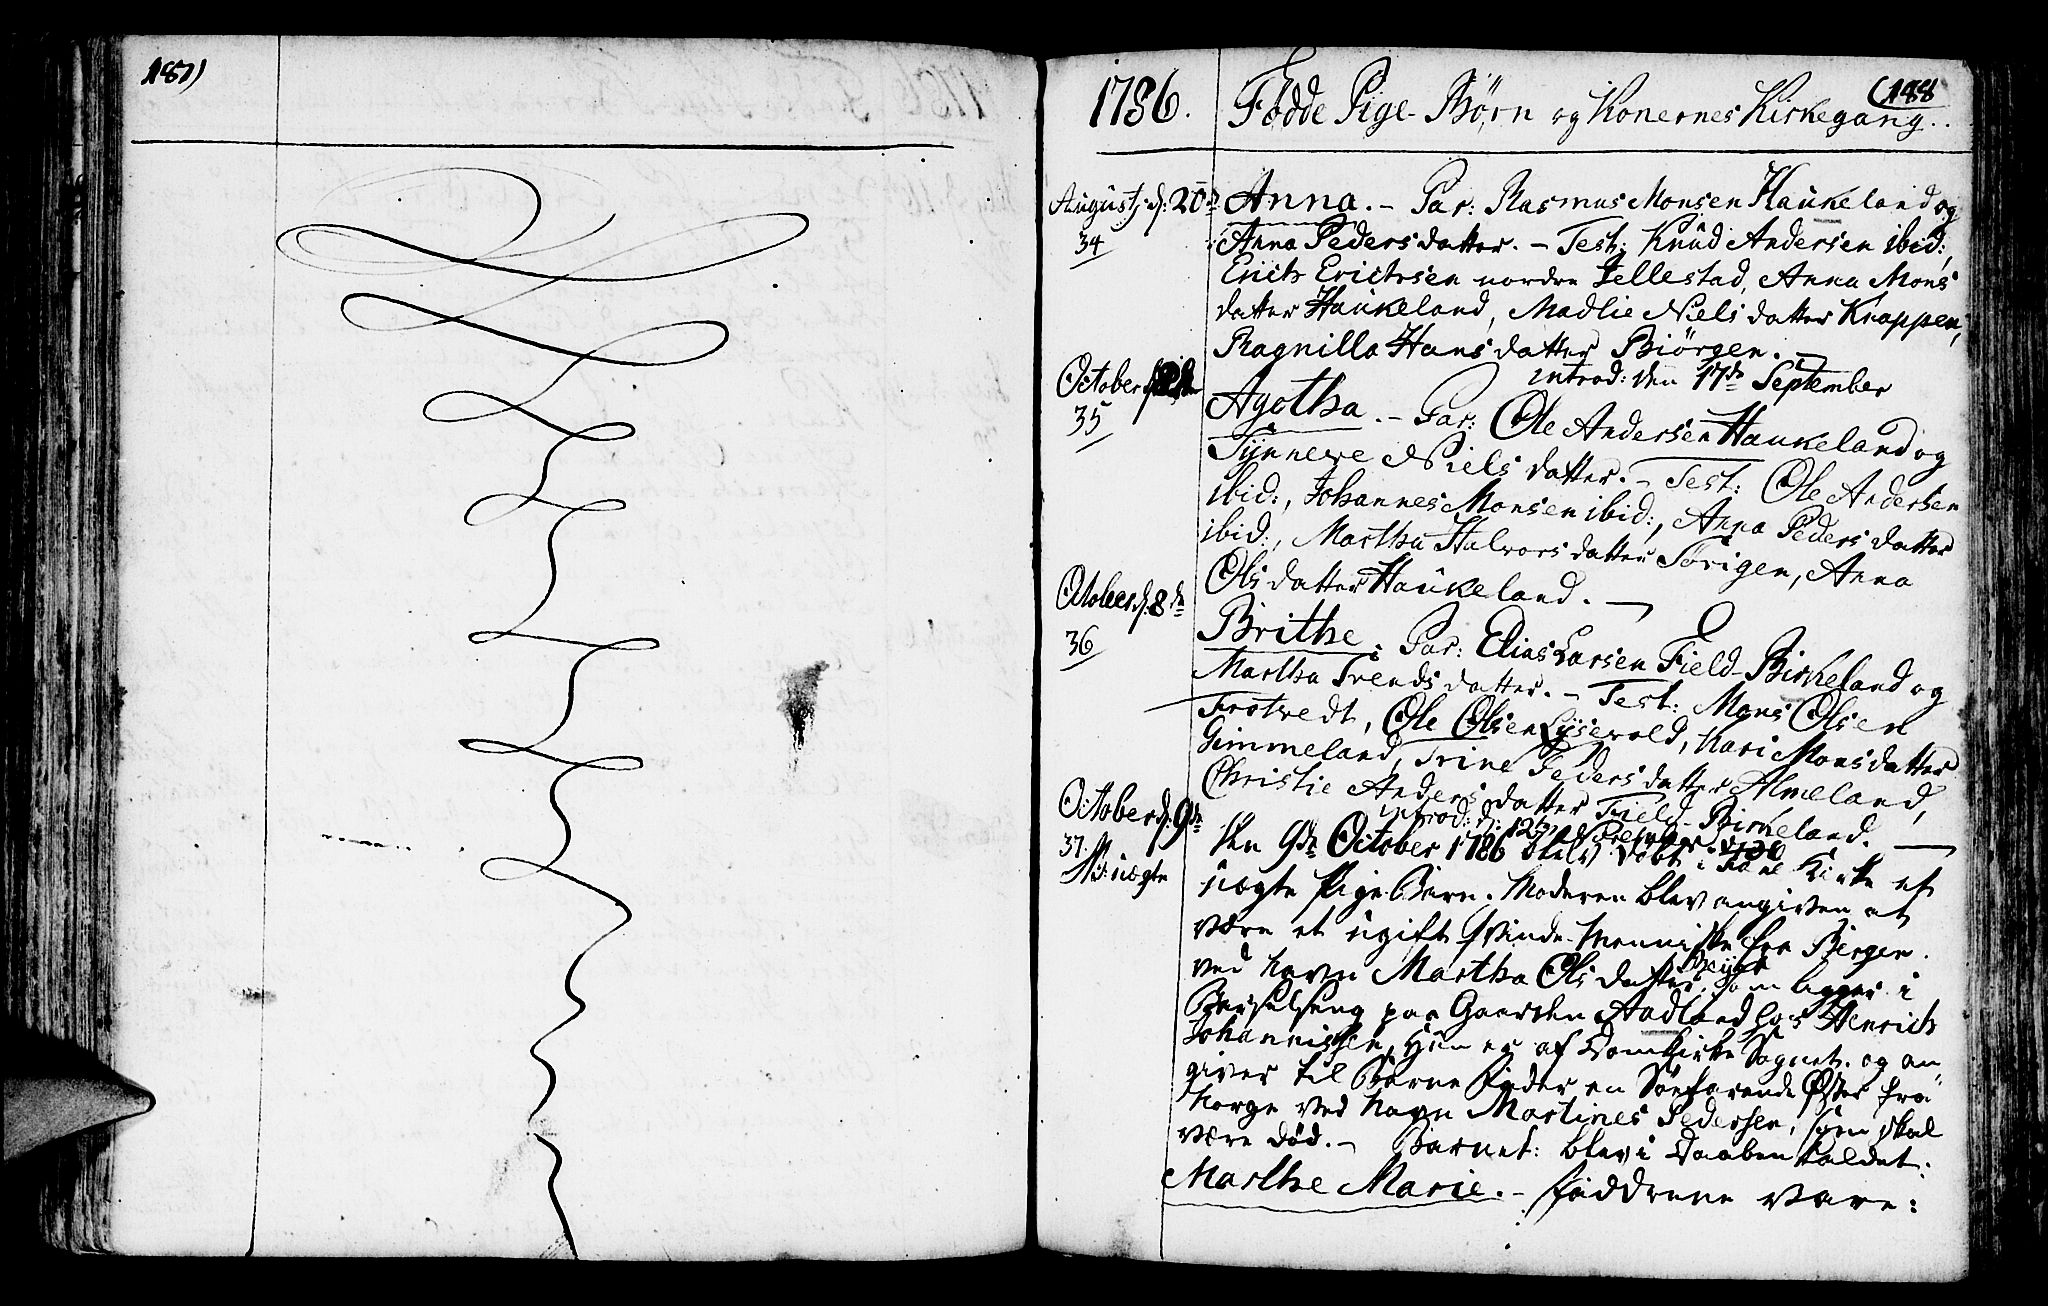 187)
1786. Fødde Pige-Børn og Konernes Kirkegang.. (188
August: d: 20de Anna. - Par: Rasmus Monsen Haukeland og
34 Anna Pedersdatter. - Test: Knud Andersen ibid:,
Erich Erichsen nordre Jellestad, Anna Mons
datter Haukeland, Madlie Nielsdatter Knappen,
Ragnilla Hansdatter Biørgen. -
introd: den 17de September
October
35 Agotha. - Par: Ole Andersen Haukeland og
Synneve Nielsdatter. - Test: Ole Andersen
ibid:, Johannes Monsen ibid:, Anna Pedersdatter
ibid:, Martha Halvorsdatter Sørigen, Anna
Olsdatter Haukeland. -
October d: 8de
36 Brithe. Par: Elias Larsen Field-Birkeland og
Martha Trendsdatter. - Test: Mons Olsen
Trotvedt, Ole Olsen Lysevold, Kari Monsdatter
Gimmeland, Trine Pedersdatter Almeland,
Christie Andersdatter Field-Birkeland. -
introd: d: 12te November
October d: 9de
37. Den 9de October 1786 blev døbt i Fane Kirke et
N: uægte uægte Pige-Barn. Moderen blev angiven at
være et ugift Qvinde-Menniske fra Bergen
ved Navn Martha Olsdatter, som ligger i
Barselseng paa Gaarden Aadland hos Henrich
Johannissen, Hun er af Domkirke Sognet. og an
giver til Barne Fader en Søefarende fra
Norge ved Navn Martines Pedersen, som skal
være død. - Barnet: blev i Daaben kaldet:
Marthe Marie. - Faddrene vare: